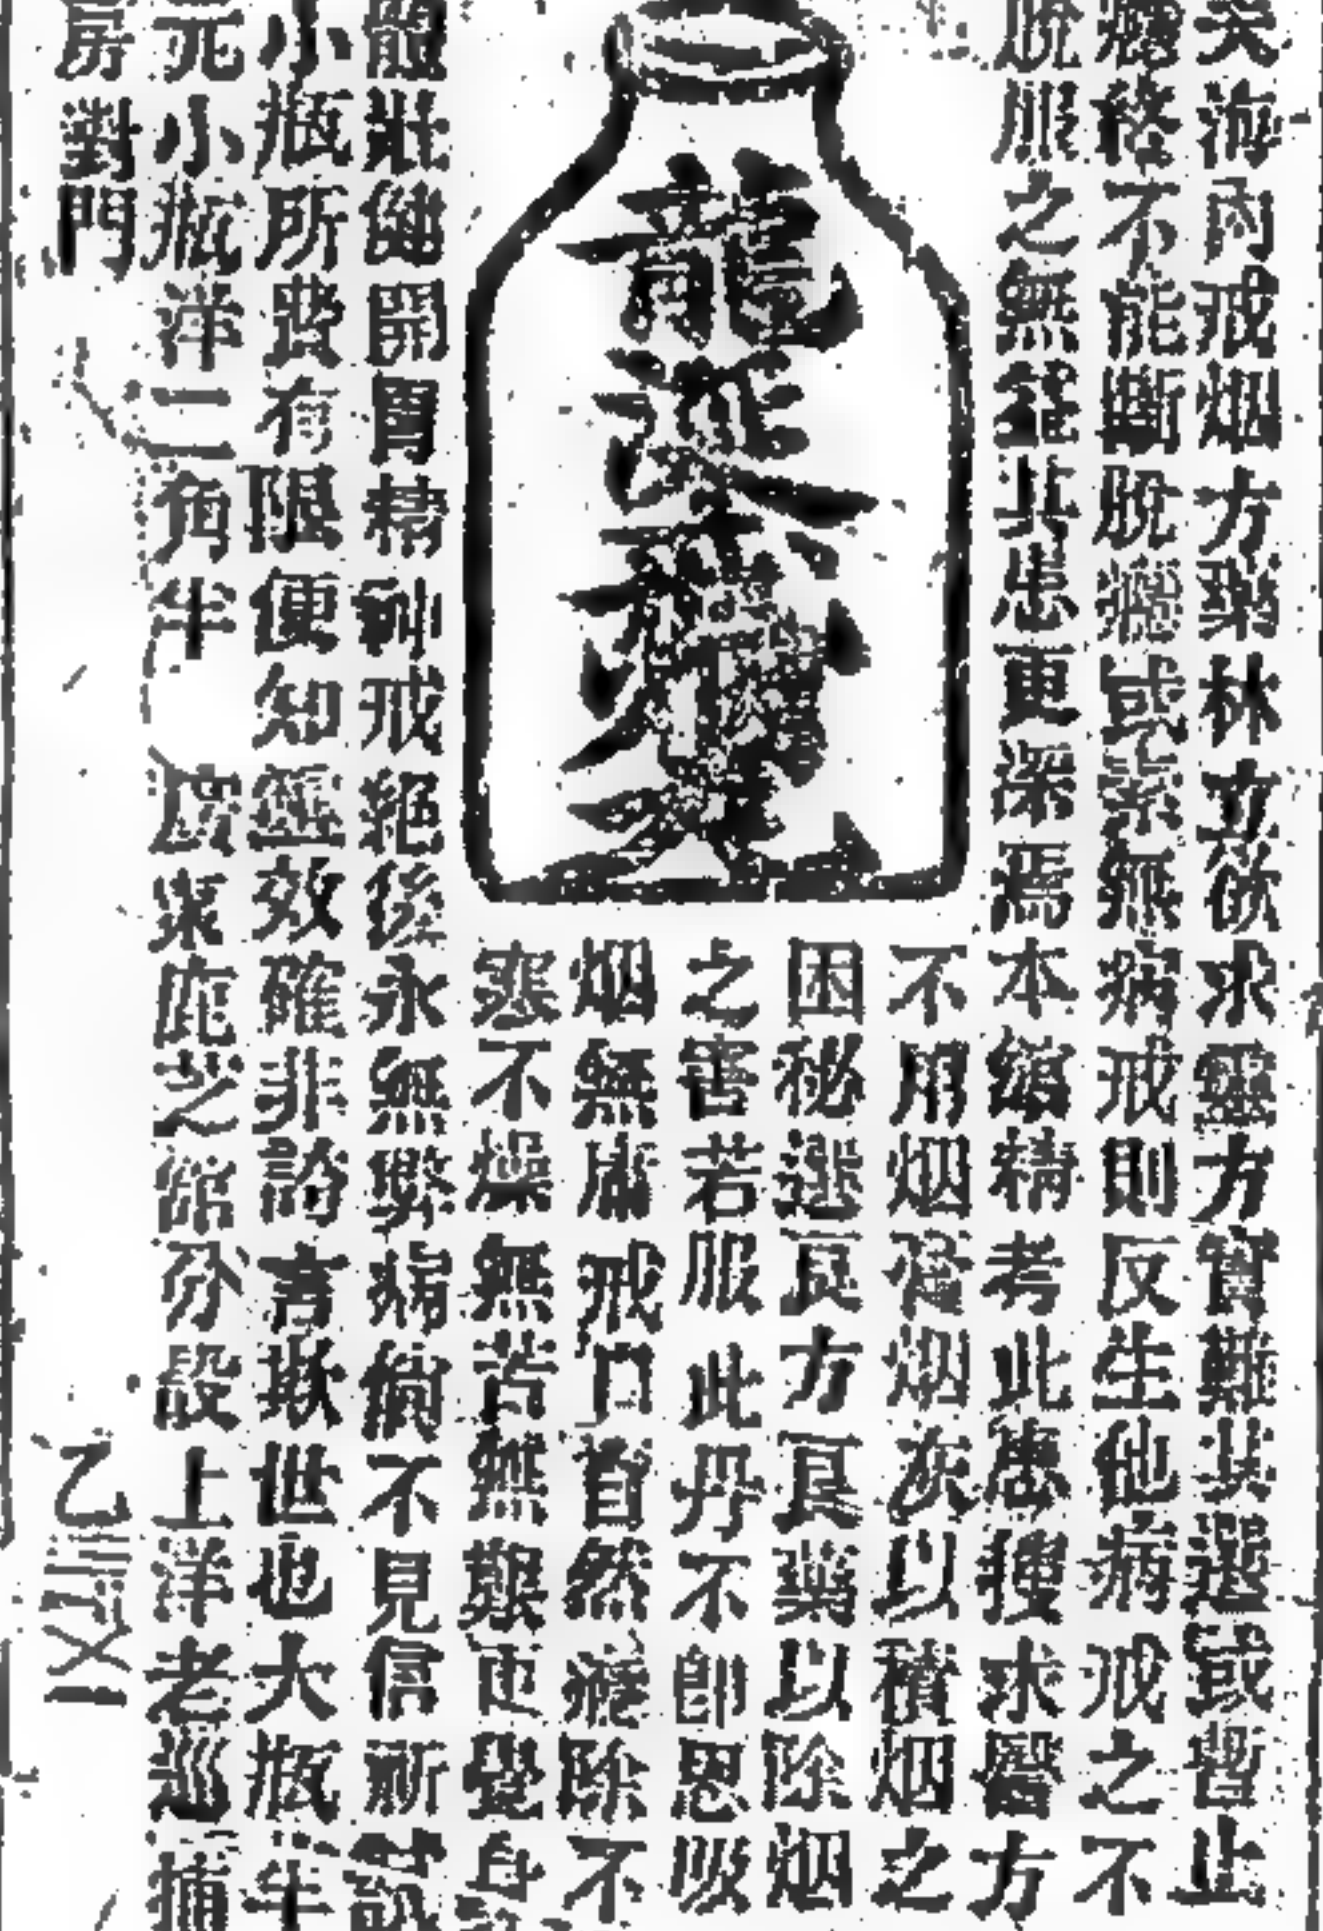 矣海內戒烟方藥林立欲求靈方實難其選或暫止
癮終不能斷脫癮或素無病戒則反生他病戒之不
脫服之無靈其患更深焉本舘精考此患搜求醫方
不用烟膏烟灰以積烟之
困秘選良方良藥以除烟
之害若服此丹不卽思吸
烟無庸戒門自然癮除不
寒不燥無苦無艱更覺身
龍涎
體壯健開胃精神戒絕後永無弊病倘不見信祈試
小瓶所費有限便知靈效確非誇言欺世也大瓶半
元小瓶洋二角半 廣東鹿芝舘分設上洋老巡捕
房對門 乙